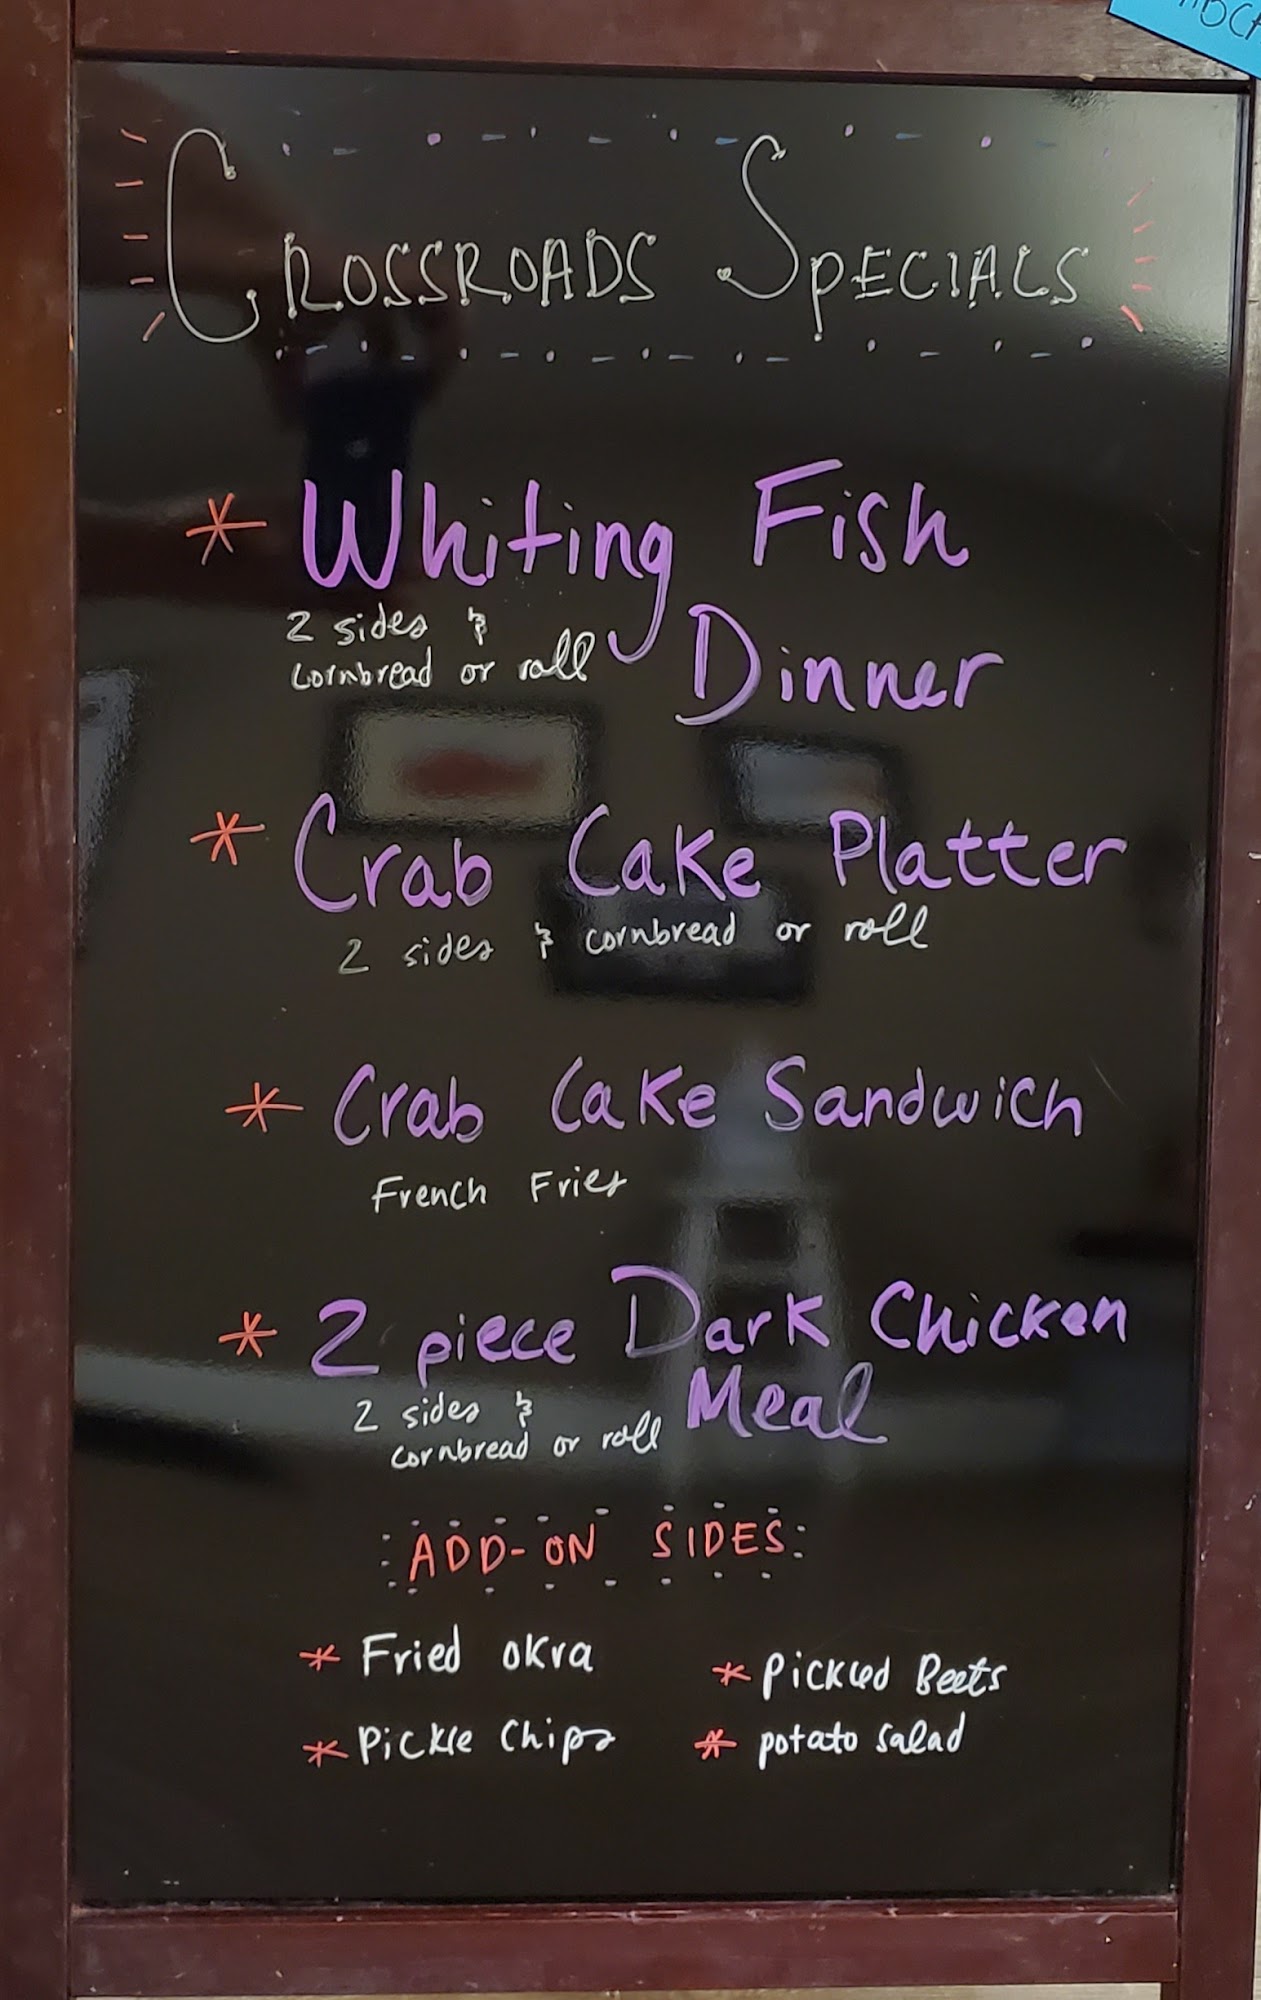 CROSSROADS SPECIALS
* Whiting Fish
Dinner
2 sides &
cornbread or roll
* Crab Cake Platter
2 sides & cornbread or roll
* Crab Cake Sandwich
French Fries
* 2 piece Dark Chicken
Meal
2 sides &
cornbread or roll
ADD-ON SIDES
* Fried okra
* Pickled Beets
* Pickle Chips
* potato salad